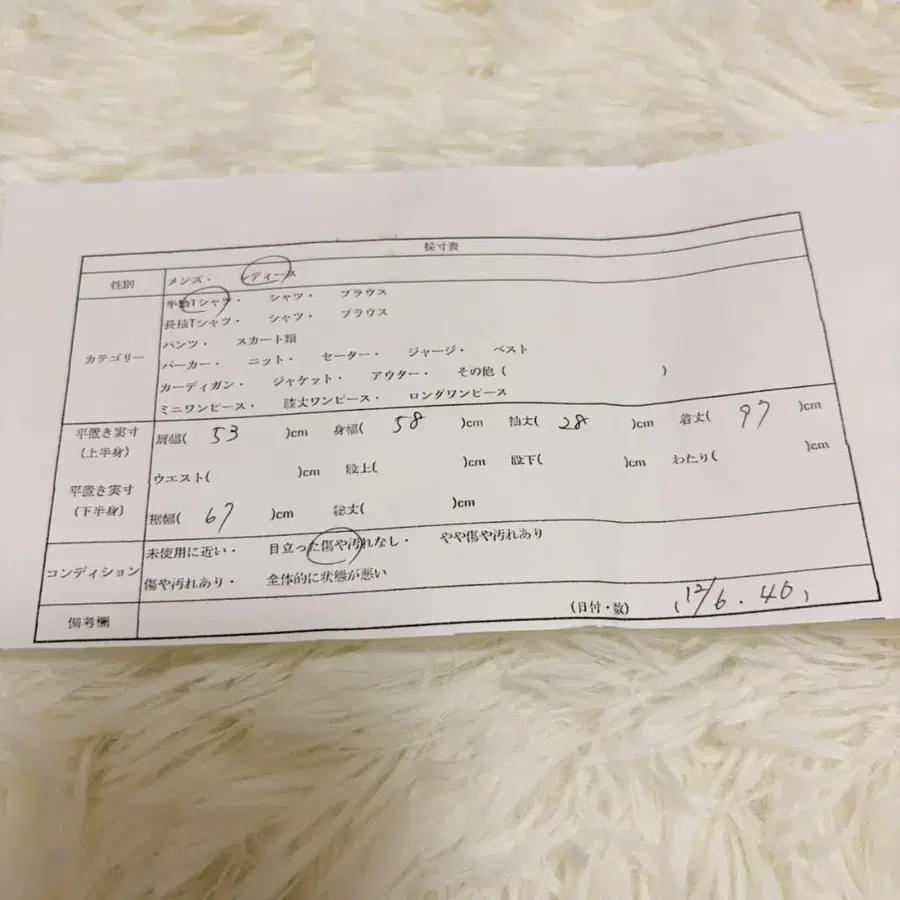 採寸表
性別 メンズ・ レディース
カテゴリー 半袖Tシャツ・ シャツ・ ブラウス
長袖Tシャツ・ シャツ・ ブラウス
パンツ・ スカート類
パーカー・ ニット・ セーター・ ジャージ・ ベスト
カーディガン・ ジャケット・ アウター・ その他 ( )
ミニワンピース・ 膝丈ワンピース・ ロングワンピース
平置き実寸 (上半身) 肩幅( 53 )cm 身幅( 58 )cm 袖丈( 28 )cm 着丈( 97 )cm
平置き実寸 (下半身) ウエスト( )cm 股上( )cm 股下( )cm わたり( )cm
裾幅( 67 )cm 総丈( )cm
コンディション 未使用に近い・ 目立った傷や汚れなし・ やや傷や汚れあり
傷や汚れあり・ 全体的に状態が悪い
備考欄 (日付・数) ( 12/6 . 40 )